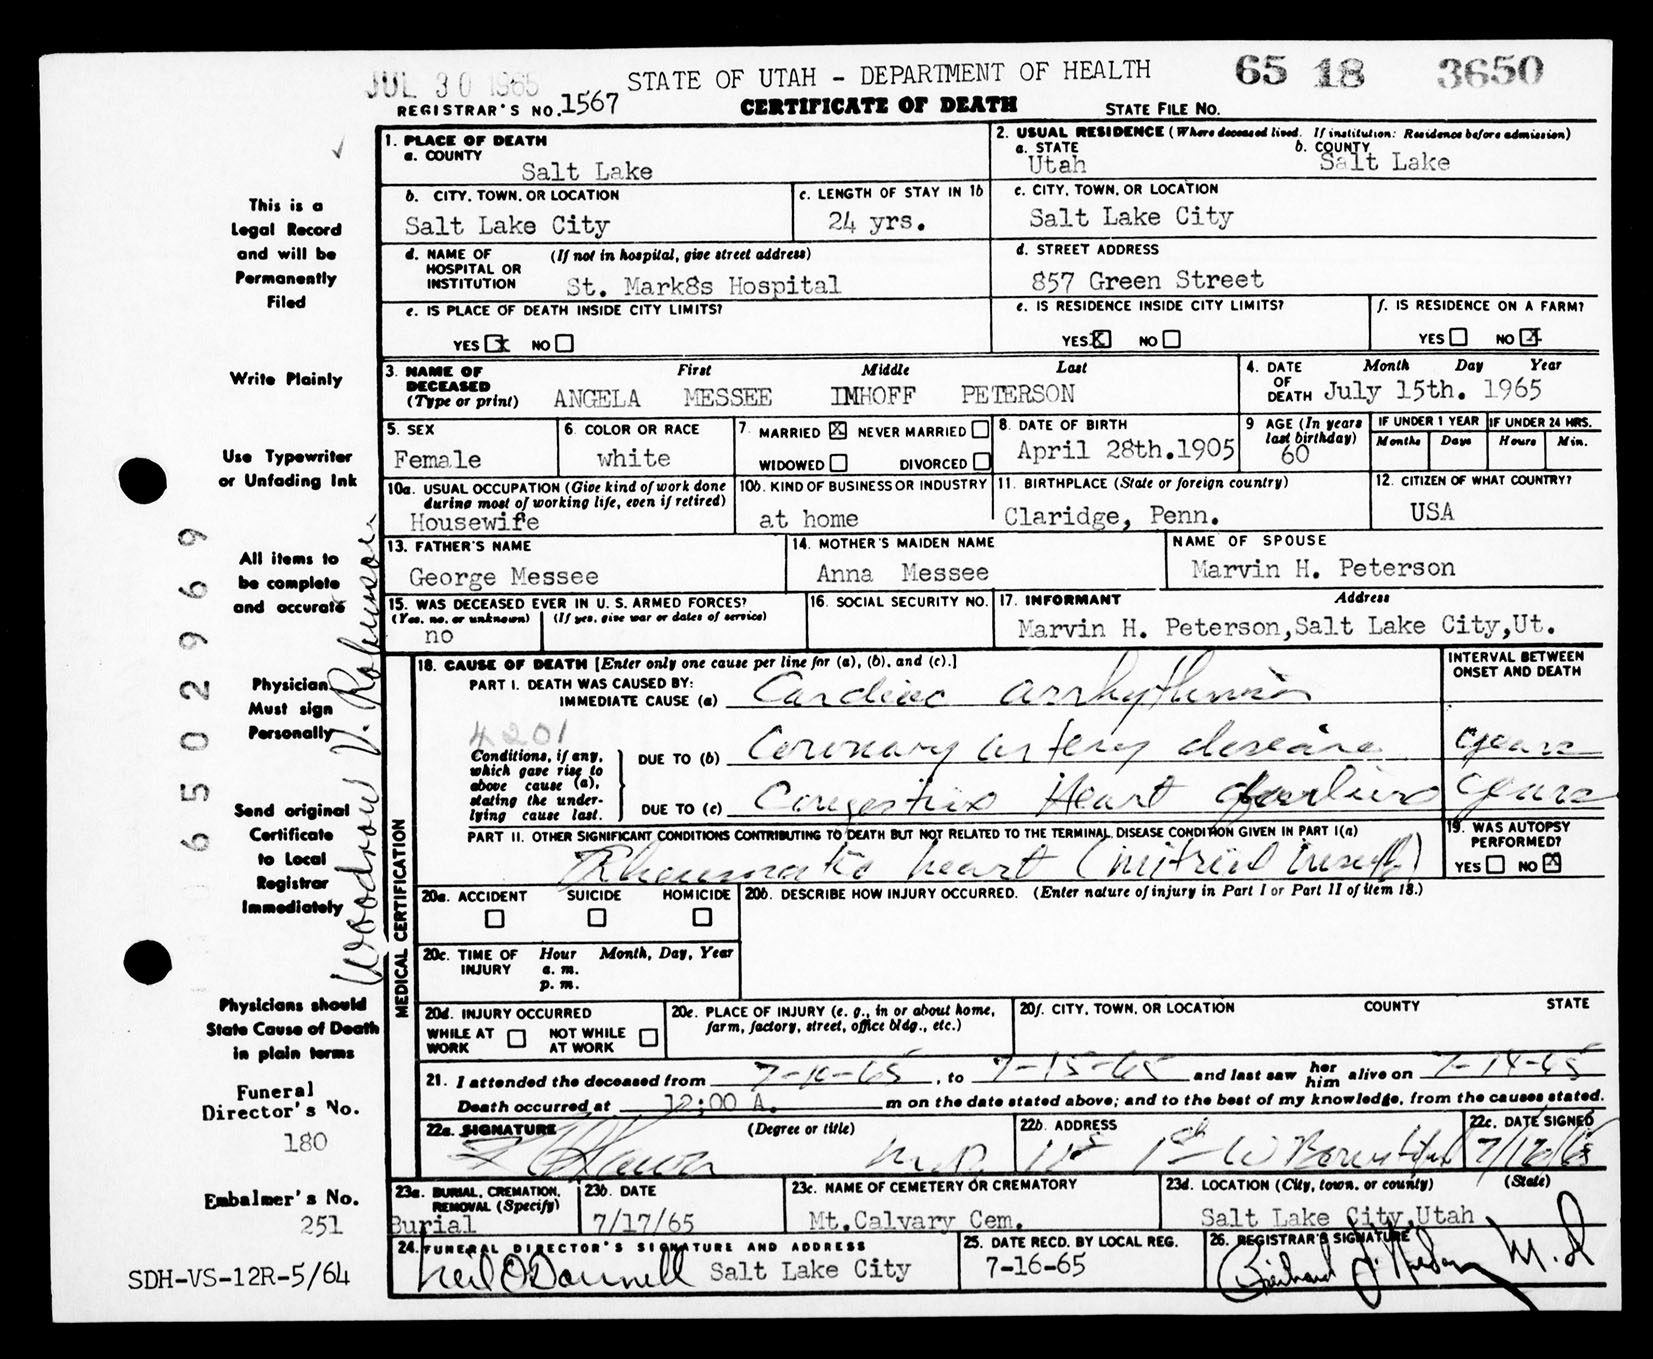 JUL 30 1965
STATE OF UTAH - DEPARTMENT OF HEALTH
65 18 3650
REGISTRAR'S NO. 1567
CERTIFICATE OF DEATH
STATE FILE NO.
This is a
Legal Record
and will be
Permanently
Filed
Write Plainly
Use Typewriter
or Unfading Ink
All items to
be complete
and accurate
Physician
Must sign
Personally
Send original
Certificate
to Local
Registrar
Immediately
Physicians should
State Cause of Death
in plain terms
Funeral
Director's No.
180
Embalmer's No.
251
SDH-VS-12R-5/64
6502969
Woodrow V. Robinson
1. PLACE OF DEATH
a. COUNTY
Salt Lake
2. USUAL RESIDENCE (Where deceased lived. If institution: Residence before admission)
a. STATE
Utah
b. COUNTY
Salt Lake
b. CITY, TOWN, OR LOCATION
Salt Lake City
c. LENGTH OF STAY IN 1b
24 yrs.
c. CITY, TOWN, OR LOCATION
Salt Lake City
d. NAME OF HOSPITAL OR INSTITUTION (If not in hospital, give street address)
St. Mark8s Hospital
d. STREET ADDRESS
857 Green Street
e. IS PLACE OF DEATH INSIDE CITY LIMITS?
YES x NO
e. IS RESIDENCE INSIDE CITY LIMITS?
YES X NO
f. IS RESIDENCE ON A FARM?
YES NO X
3. NAME OF DECEASED (Type or print)
First Middle Last
ANGELA MESSEE IMHOFF PETERSON
4. DATE OF DEATH
Month Day Year
July 15th. 1965
5. SEX
Female
6. COLOR OR RACE
white
7. MARRIED X NEVER MARRIED
WIDOWED DIVORCED
8. DATE OF BIRTH
April 28th.1905
9 AGE (In years last birthday)
60
IF UNDER 1 YEAR
Months Days
IF UNDER 24 HRS.
Hours Min.
10a. USUAL OCCUPATION (Give kind of work done during most of working life, even if retired)
Housewife
10b. KIND OF BUSINESS OR INDUSTRY
at home
11. BIRTHPLACE (State or foreign country)
Claridge, Penn.
12. CITIZEN OF WHAT COUNTRY?
USA
13. FATHER'S NAME
George Messee
14. MOTHER'S MAIDEN NAME
Anna Messee
NAME OF SPOUSE
Marvin H. Peterson
15. WAS DECEASED EVER IN U. S. ARMED FORCES?
(Yes, no, or unknown) (If yes, give war or dates of service)
no
16. SOCIAL SECURITY NO.
17. INFORMANT Address
Marvin H. Peterson,Salt Lake City,Ut.
MEDICAL CERTIFICATION
18. CAUSE OF DEATH [Enter only one cause per line for (a), (b), and (c).]
INTERVAL BETWEEN ONSET AND DEATH
PART I. DEATH WAS CAUSED BY:
IMMEDIATE CAUSE (a) Cardiac arrhythmia
4201
Conditions, if any, which gave rise to above cause (a), stating the underlying cause last.
DUE TO (b) Coronary artery disease years
DUE TO (c) Congestive Heart failure years
PART II. OTHER SIGNIFICANT CONDITIONS CONTRIBUTING TO DEATH BUT NOT RELATED TO THE TERMINAL DISEASE CONDITION GIVEN IN PART I(a)
Rheumatic heart (mitral insuff)
19. WAS AUTOPSY PERFORMED?
YES NO X
20a. ACCIDENT SUICIDE HOMICIDE
20b. DESCRIBE HOW INJURY OCCURRED. (Enter nature of injury in Part I or Part II of item 18.)
20c. TIME OF INJURY Hour a. m. p. m. Month, Day, Year
20d. INJURY OCCURRED
WHILE AT WORK NOT WHILE AT WORK
20e. PLACE OF INJURY (e. g., in or about home, farm, factory, street, office bldg., etc.)
20f. CITY, TOWN, OR LOCATION COUNTY STATE
21. I attended the deceased from 7-10-65, to 7-15-65 and last saw her him alive on 7-14-65
Death occurred at 12:00 A. m on the date stated above; and to the best of my knowledge, from the causes stated.
22a. SIGNATURE (Degree or title)
M.D.
22b. ADDRESS
1st W Bountiful
22c. DATE SIGNED
7/16/65
23a. BURIAL, CREMATION, REMOVAL (Specify)
Burial
23b. DATE
7/17/65
23c. NAME OF CEMETERY OR CREMATORY
Mt.Calvary Cem.
23d. LOCATION (City, town, or county) (State)
Salt Lake City,Utah
24. FUNERAL DIRECTOR'S SIGNATURE AND ADDRESS
Neil O'Donnell Salt Lake City
25. DATE RECD. BY LOCAL REG.
7-16-65
26. REGISTRAR'S SIGNATURE
M.D